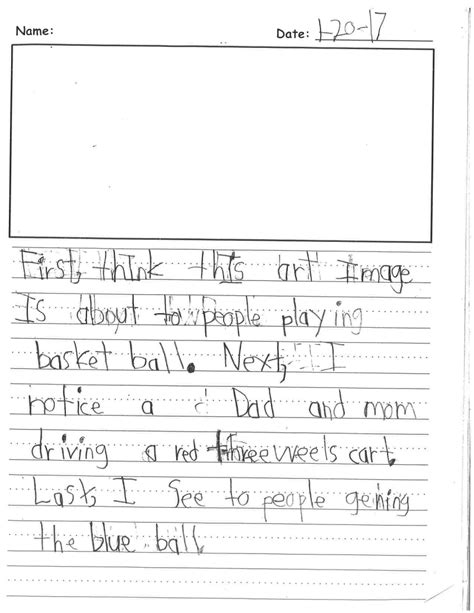 Name: Date: 1-20-17
First, thInk thIs art Image
Is about to people playing
basket ball. Next, I
notice a Dad and mom
driving a red three weels cart.
Last, I See to people geining
the blue ball.